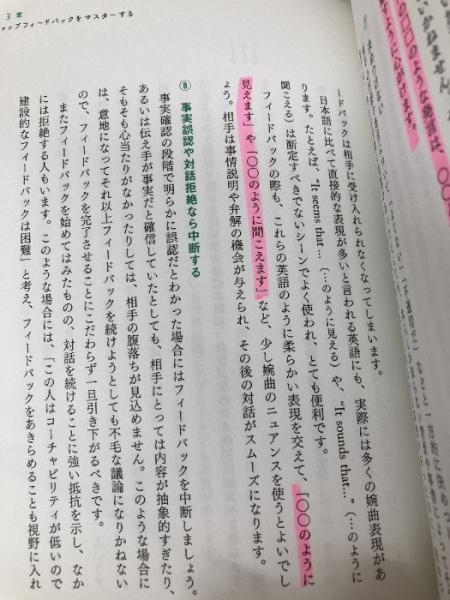 3章
ャップフィードバックをマスターする
ードバックは相手に受け入れられなくなってしまいます。
日本語に比べて直接的な表現が多いと言われる英語にも、実際には多くの婉曲表現があ
ります。たとえば、"It seems that…（…のように見える）や、"It sounds that…"（…のように
聞こえる）は断定すべきでないシーンでよく使われ、とても便利です。
フィードバックの際も、これらの英語のように柔らかい表現を交えて、「〇〇のように
見えます」や「〇〇のように聞こえます」など、少し婉曲のニュアンスを使うとよいでし
ょう。相手は事情説明や弁解の機会が与えられ、その後の対話がスムーズになります。
⑧ 事実誤認や対話拒絶なら中断する
事実確認の段階で明らかに誤認だとわかった場合にはフィードバックを中断しましょう。
あるいは伝え手が事実だと確信していたとしても、相手にとっては内容が抽象的すぎたり、
そもそも心当たりがなかったりしては、相手の腹落ちが見込めません。このような場合に
は、意地になってそれ以上フィードバックを続けようとしても不毛な議論になりかねない
ので、フィードバックを完了させることにこだわらず一旦引き下がるべきです。
またフィードバックを始めてはみたものの、対話を続けることに強い抵抗を示し、なか
には拒絶する人もいます。このような場合には、「この人はコーチャビリティが低いので
建設的なフィードバックは困難」と考え、フィードバックをあきらめることも視野に入れ